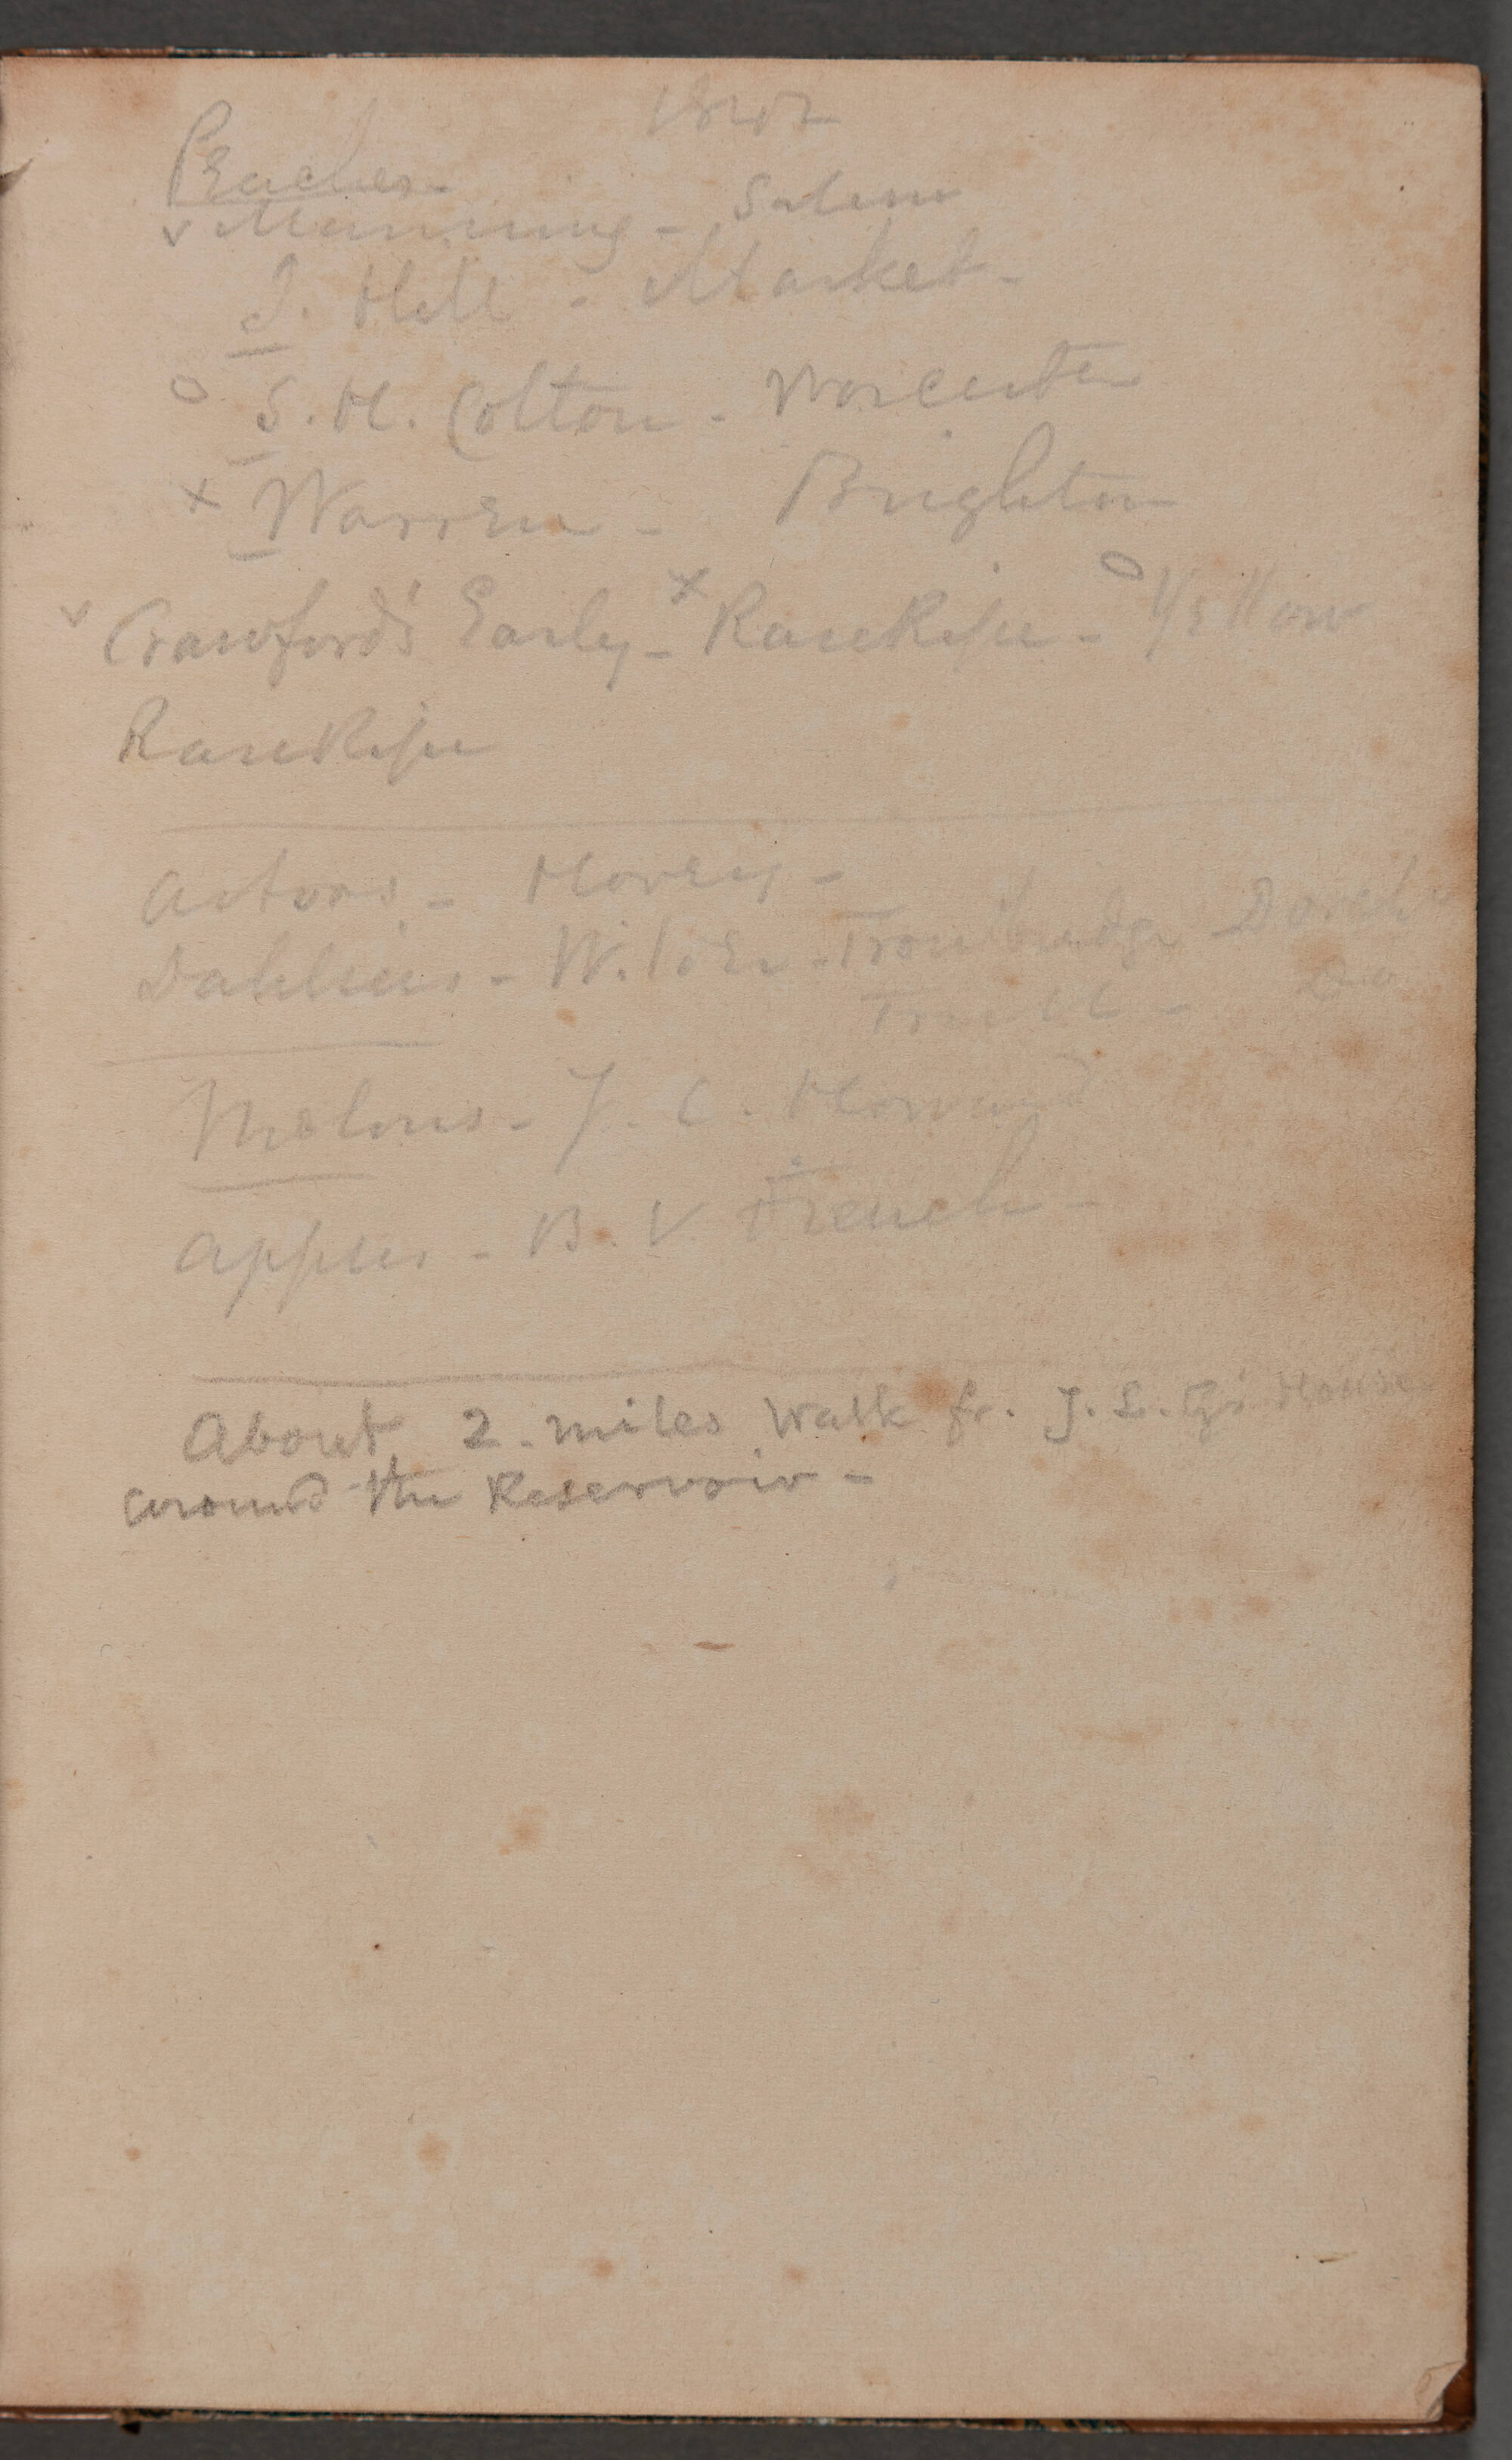 Peaches -
v Manning - Salem
J. Hill - Market -
o S. H. Colton - Worcester
x Warren - Brighton
v Crawford's Early - x Rareripe - o Yellow
Rareripe
Astors - Hovey -
Dahlias - Wilder - Trowbridge Dorch
Do
Melons - J. C. Howard
Apples - B. V. French -
About 2 miles walk fr. J. L. G's House
around the Reservoir -